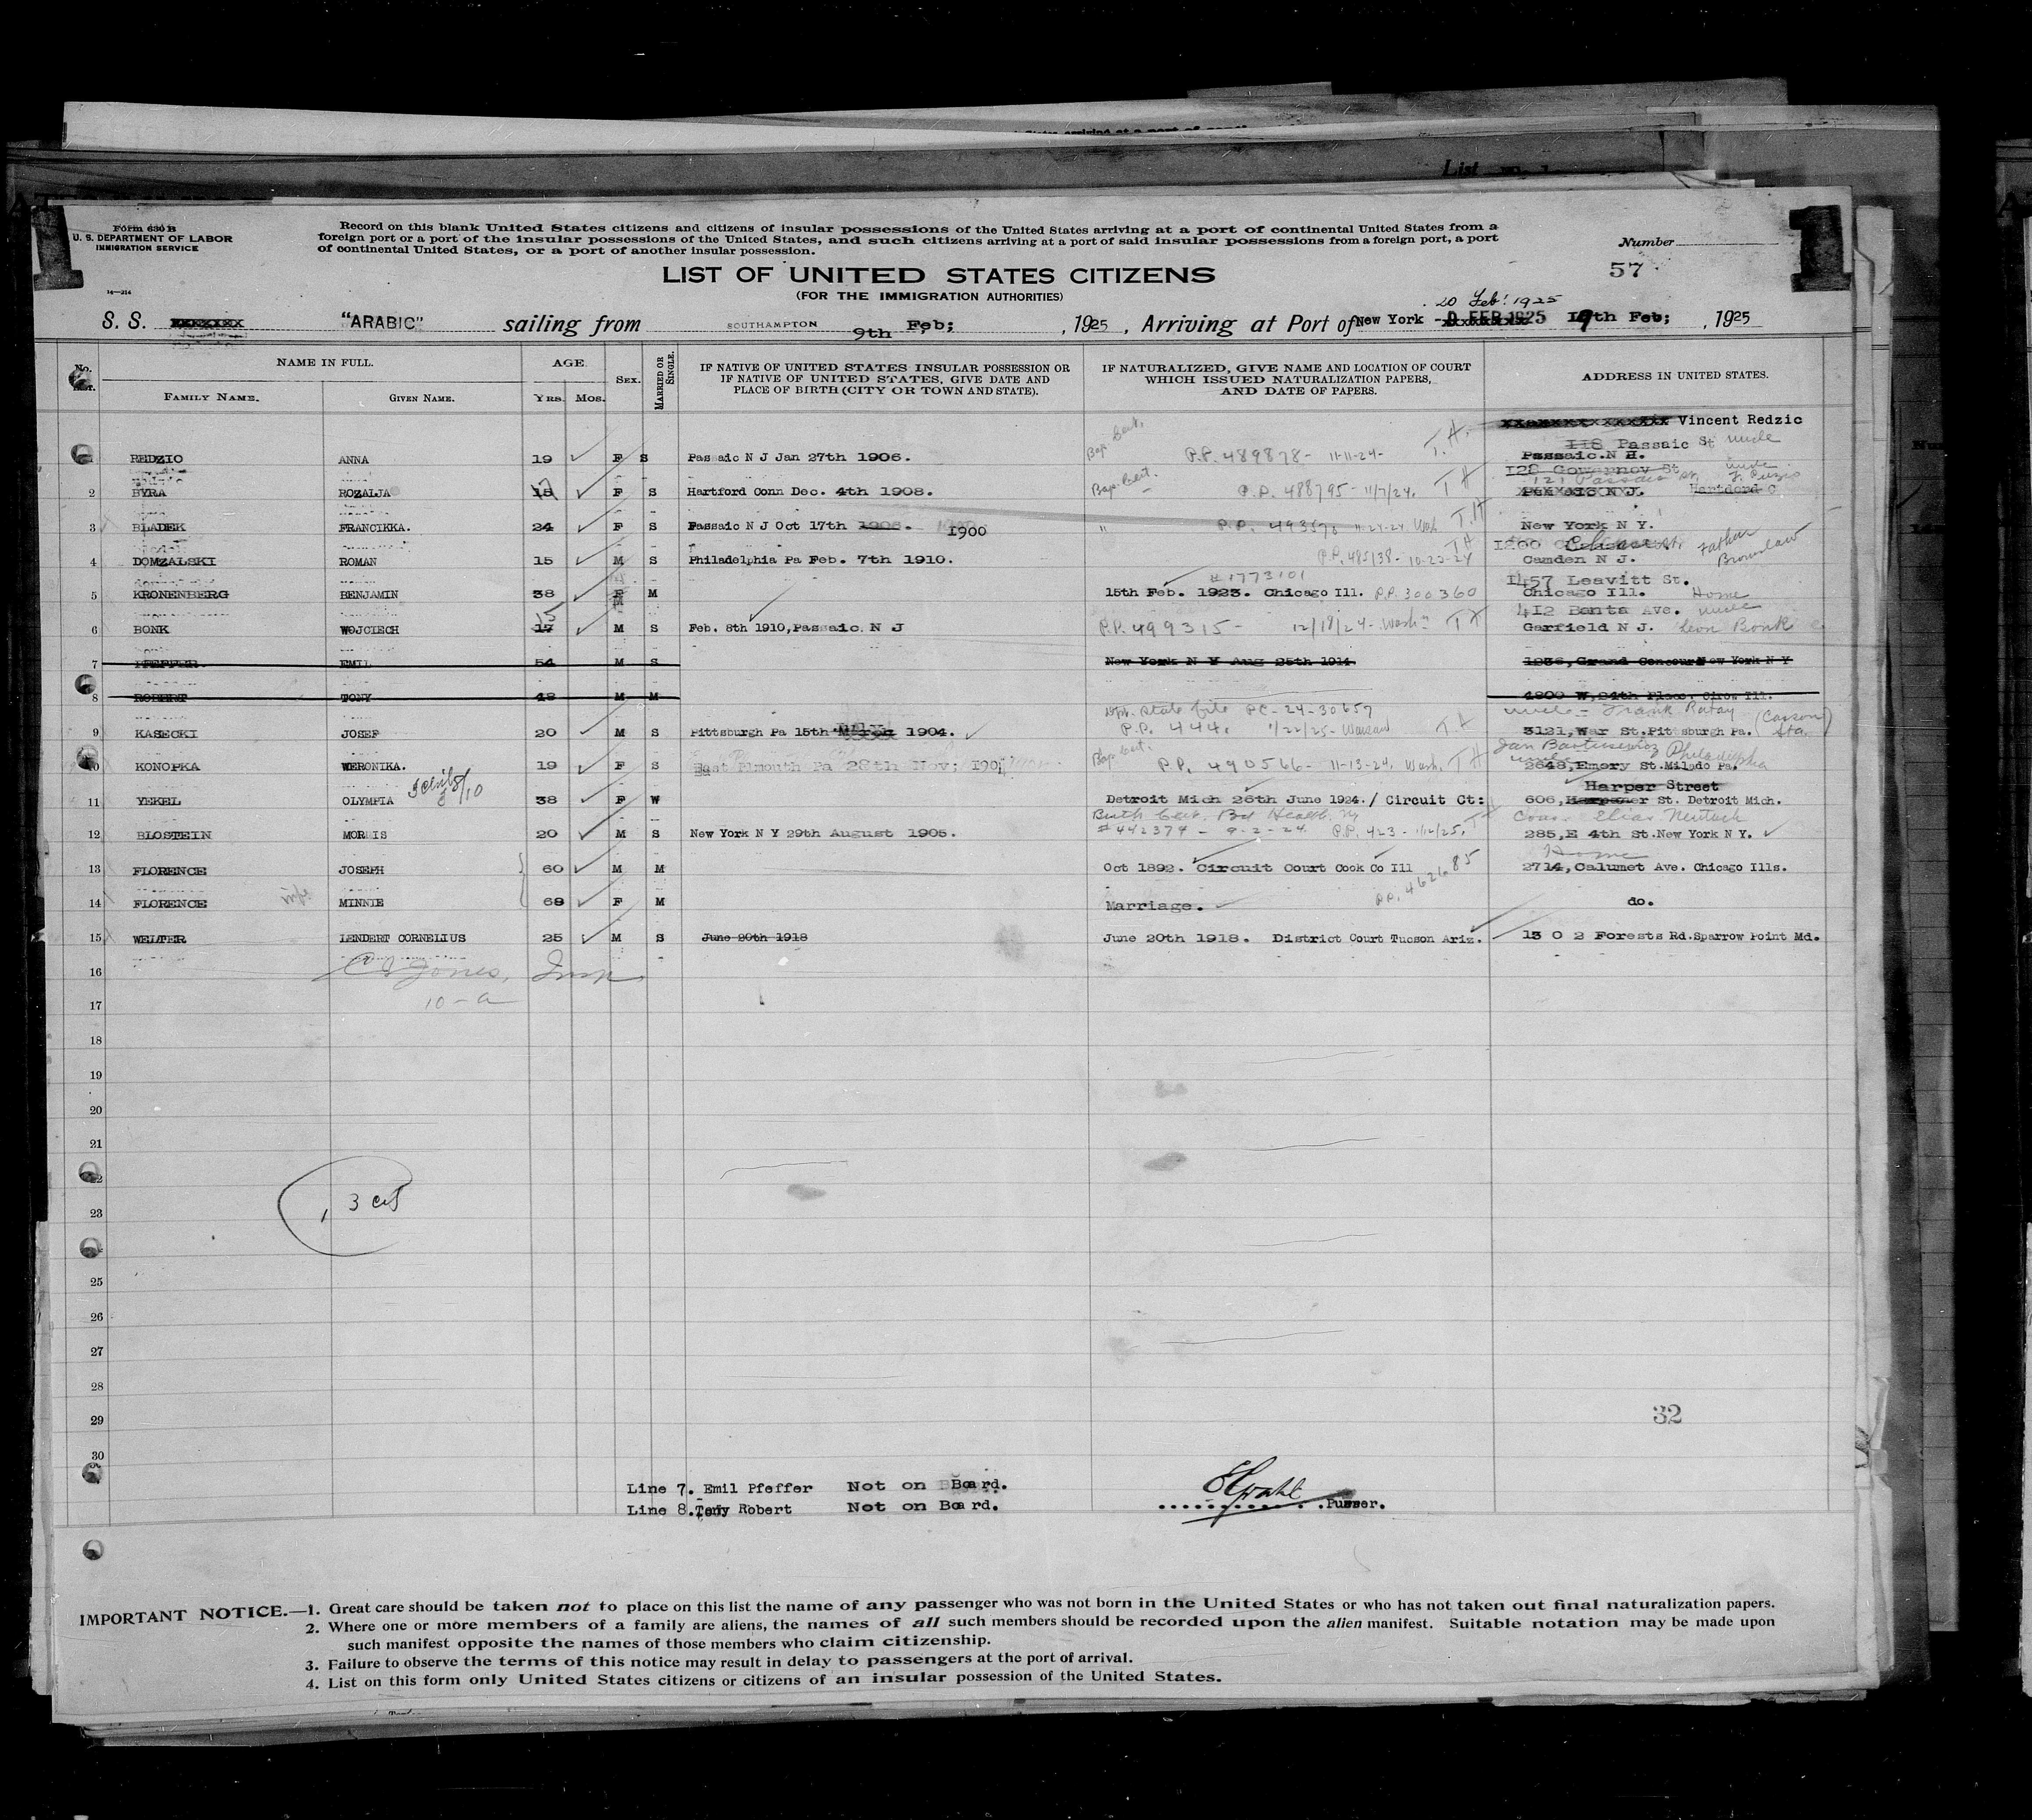 1 1
Form 630 B
U. S. DEPARTMENT OF LABOR
IMMIGRATION SERVICE
14—214
Record on this blank United States citizens and citizens of insular possessions of the United States arriving at a port of continental United States from a
foreign port or a port of the insular possessions of the United States, and such citizens arriving at a port of said insular possessions from a foreign port, a port
of continental United States, or a port of another insular possession.
Number
57
LIST OF UNITED STATES CITIZENS
(FOR THE IMMIGRATION AUTHORITIES)
20 Feb. 1925
S. S. "ARABIC" sailing from SOUTHAMPTON 9th Feb; , 1925 , Arriving at Port of New York FEB 1925 19th Feb; , 1925
No. List. NAME IN FULL. AGE SEX. MARRIED OR SINGLE. IF NATIVE OF UNITED STATES INSULAR POSSESSION OR IF NATIVE OF UNITED STATES, GIVE DATE AND PLACE OF BIRTH (CITY OR TOWN AND STATE). IF NATURALIZED, GIVE NAME AND LOCATION OF COURT WHICH ISSUED NATURALIZATION PAPERS, AND DATE OF PAPERS. ADDRESS IN UNITED STATES.
FAMILY NAME. GIVEN NAME. YRS. MOS.
Vincent Redzic
118 Passaic St uncle
1 REDZIO ANNA 19 F S Passaic N J Jan 27th 1906. Bap. Cert. P.P. 489878 - 11-11-24 - T.H. Passaic.N H.
128 Governov St uncle
121 Passaic St
2 BYRA ROZALJA 17 F S Hartford Conn Dec. 4th 1908. Bap. Cert. P.P. 488795 - 11/7/24. T H Passaic N J. Hartford C
3 BLADEK FRANCIKKA. 24 F S Passaic N J Oct 17th 1906. 1900 " P.P. 493570 11-24-24 Wash. T.H New York N Y.
1200 Father
4 DOMZALSKI ROMAN 15 M S Philadelphia Pa Feb. 7th 1910. P.P. 485138 - 10-22-24 T H Camden N J. Bronslaw
# 1773101 1457 Leavitt St.
5 KRONENBERG BENJAMIN 38 F M M 15th Feb. 1923. Chicago Ill. P.P. 300360 Chicago Ill. Home
15 412 Banta Ave. uncle
6 BONK WOJCIECH 17 M S Feb. 8th 1910, Passaic. N J P.P. 499315 - 12/18/24 - Wash. T H Garfield N J. Leon Bonk
7 PFEFFER EMIL 54 M S New York N Y Aug 25th 1914 1236, Grand Concour New York N Y
8 ROBERT TONY 48 M M 4800 W, 24th Place. Circe Ill.
Dept. State file PC-24-30657 uncle - Frank Ratay (Carson Sta.)
9 KASECKI JOSEF 20 M S Pittsburgh Pa 15th March 1904. P.P. 444. 1/22/25 - Warsaw T H 3121, War St. Pittsburgh Pa.
Jan Bartusewicz Philadelphia
10 KONOPKA WERONIKA. 19 F S East Plmouth Pa 28th Nov; 190 Bap. Cert. P.P. 490566 - 11-13-24, Wash. T H 2648, Emory St. Milado Pa.
Harper Street
11 YEKEL OLYMPIA 38 F W Detroit Mich 26th June 1924. / Circuit Ct: 606, St. Detroit Mich.
Birth Cert. Bd Health, Ny
12 BLOSTEIN MORRIS 20 M S New York N Y 29th August 1905. # 442374 - 9-2-24 P.P. 423 - 1/12/25. T H 285, E 4th St. New York N Y.
Home
13 FLORENCE JOSEPH 60 M M Oct 1892. Circuit Court Cook Co Ill P.P. 462685 2714, Calumet Ave. Chicago Ills.
14 FLORENCE wife MINNIE 68 F M Marriage. do.
15 WELTER LENDERT CORNELIUS 25 M S June 20th 1918 June 20th 1918. District Court Tucson Ariz. 13 0 2 Forests Rd. Sparrow Point Md.
16 Jones, Insp
17 10 - a
18
19
20
21
22
23 3 cit
25
26
27
28
29 32
30
Line 7. Emil Pfeffer Not on Board.
Line 8. Tony Robert Not on Board. Purser.
IMPORTANT NOTICE.—1. Great care should be taken not to place on this list the name of any passenger who was not born in the United States or who has not taken out final naturalization papers.
2. Where one or more members of a family are aliens, the names of all such members should be recorded upon the alien manifest. Suitable notation may be made upon
such manifest opposite the names of those members who claim citizenship.
3. Failure to observe the terms of this notice may result in delay to passengers at the port of arrival.
4. List on this form only United States citizens or citizens of an insular possession of the United States.